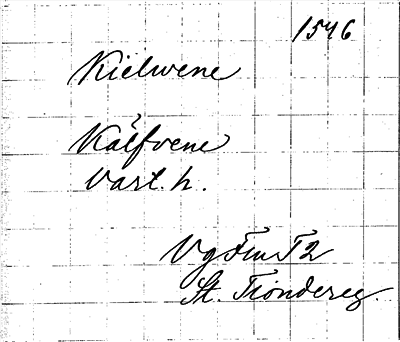 1546
Kielwene
Kälfvene
Vart. h.
Vg Fm T2
St. Tiondereg.